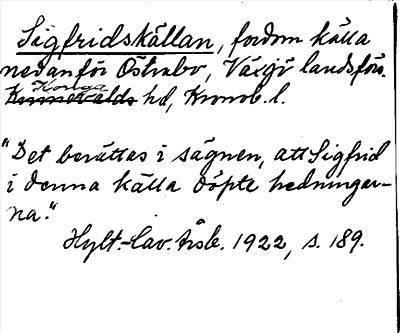 Sigfridskällan, fordom källa
nedanför Östrabo, Växjö landsförs.
Konga
Kinnevalds hd, Kronob. l.
"Det berättas i sägnen, att Sigfrid
i denna källa döpte hedningar-
na."
Hylt.-Cav. Årsb. 1922, s. 189.